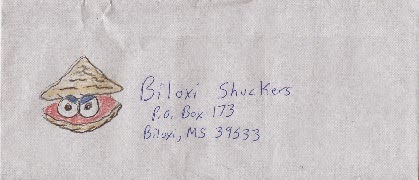 Biloxi Shuckers
P.O. Box 173
Biloxi, MS 39533